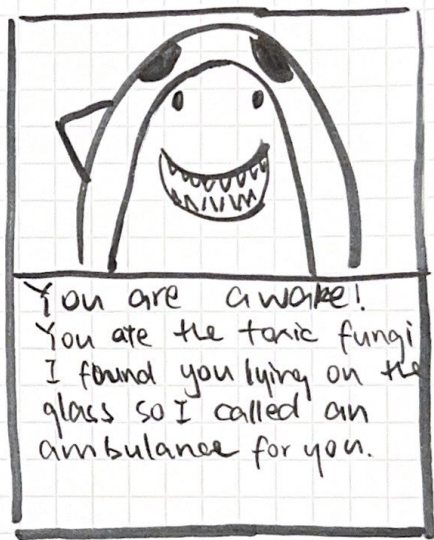 You are awake!
You ate the toxic fungi
I found you lying on the
glass so I called an
ambulance for you.